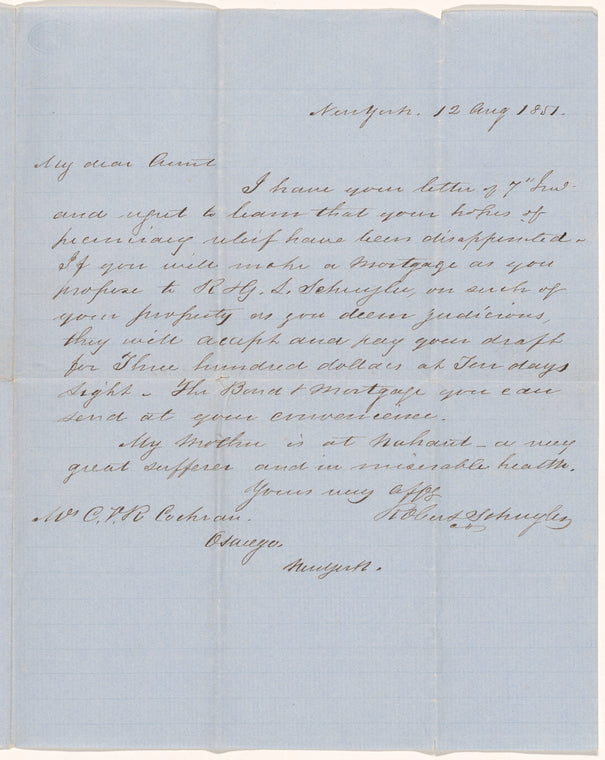 New York. 12 Aug 1851.
My dear Aunt
I have your letter of 7" Inst.
and regret to learn that your hopes of
pecuniary relief have been disappointed.
If you will make a Mortgage as you
propose to R & G. L. Schuyler, on such of
your property as you deem judicious,
they will accept and pay your draft
for Three hundred dollars at Ten days
sight - The Bond & Mortgage you can
send at your convenience.
My Mother is at Nahant - a very
great sufferer and in miserable health.
Yours very affy
Robert Schuyler
Mrs C. V. R Cochran.
Oswego.
New York.